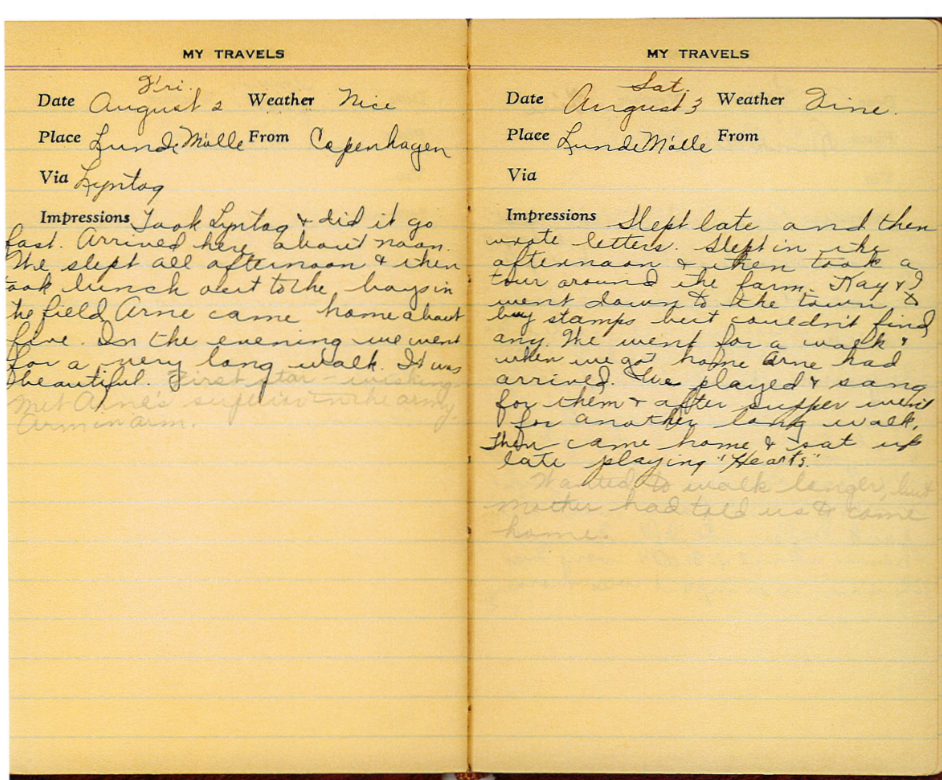 MY TRAVELS
Fri.
Date August 2 Weather Nice
Place Lunde Mölle From Copenhagen
Via Lyntog
Impressions Took Lyntog & did it go
fast. Arrived here about noon.
We slept all afternoon & then
took lunch out to the boys in
the field Arne came home about
five. In the evening we went
for a very long walk. It was
beautiful. First star - wishing
Met Arne's superior in the army.
Arm in arm.
MY TRAVELS
Sat.
Date August 3 Weather Fine.
Place Lunde Mölle From
Via
Impressions Slept late and then
wrote letters. Slept in the
afternoon & then took a
tour around the farm. Kay & I
went down to the town to
buy stamps but couldn't find
any. We went for a walk &
when we got home Arne had
arrived. We played & sang
for them & after supper went
for another long walk.
Then came home & sat up
late playing "Hearts."
Wanted to walk longer, but
mother had told us to come
home.